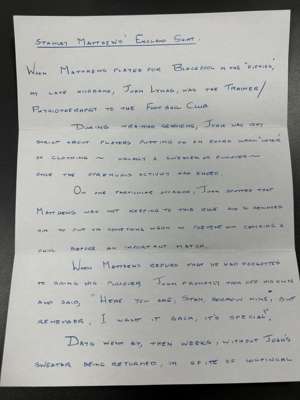 STANLEY MATTHEWS' ENGLAND SHIRT.
WHEN MATTHEWS PLAYED FOR BLACKPOOL IN THE "FIFTIES",
MY LATE HUSBAND, JOHN LYNAS, WAS THE TRAINER/
PHYSIOTHERAPIST TO THE FOOTBALL CLUB.
DURING TRAINING SESSIONS, JOHN WAS VERY
STRICT ABOUT PLAYERS PUTTING ON AN EXTRA WARM "LAYER"
OF CLOTHING ~ USUALLY A SWEATER OR PULLOVER ~
ONCE THE STRENUOUS ACTIVITY HAD ENDED.
ON ONE PARTICULAR OCCASION, JOHN SPOTTED THAT
MATTHEWS WAS NOT KEEPING TO THIS RULE AND REMINDED
HIM TO PUT ON SOMETHING WARM TO PREVENT CATCHING A
CHILL BEFORE AN IMPORTANT MATCH.
WHEN MATTHEWS REPLIED THAT HE HAD FORGOTTEN
TO BRING HIS PULLOVER JOHN PROMPTLY TOOK OFF HIS OWN
AND SAID, "HERE YOU ARE, STAN, BORROW MINE, BUT
REMEMBER, I WANT IT BACK, IT'S SPECIAL".
DAYS WENT BY, THEN WEEKS, WITHOUT JOHN'S
SWEATER BEING RETURNED, IN SPITE OF CONTINUAL